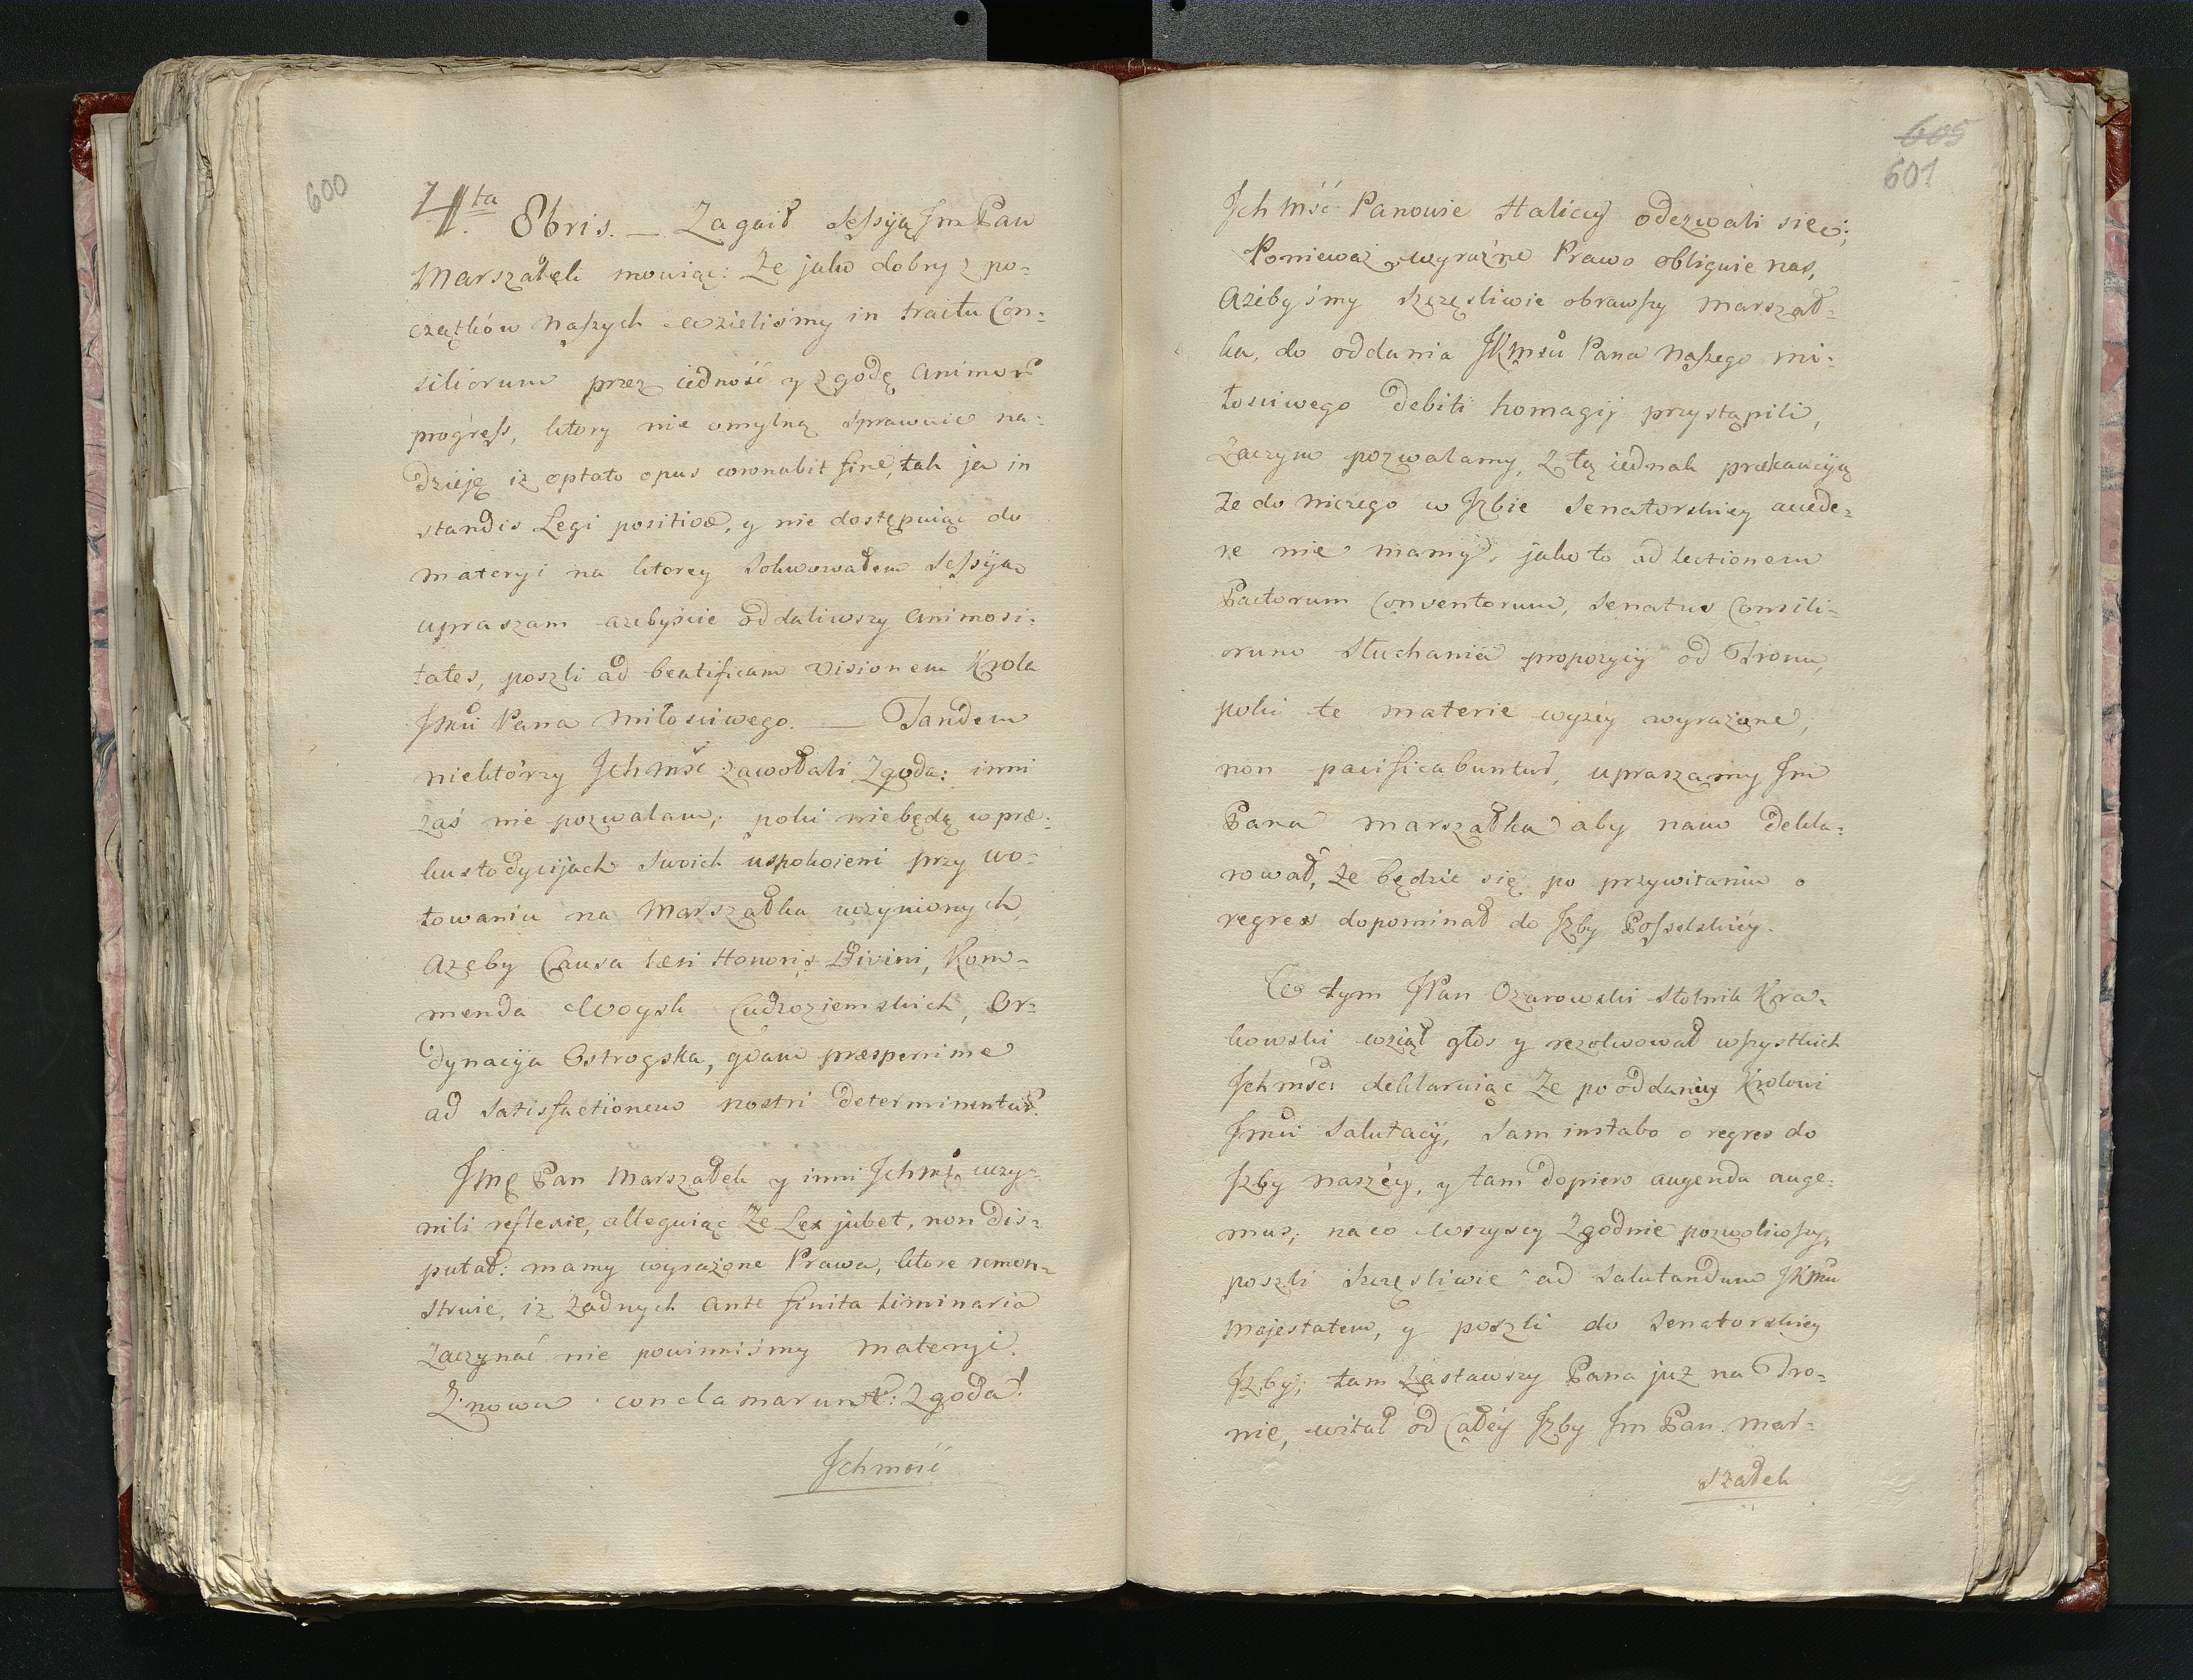 600
4.ta 8bris. — Zagaił Sessyą Jm Pan
Marszałek mowiąc: Że jako dobry z po=
czątków naszych wzieliśmy in tractu Con=
siliorum przez iedność y zgodę animor
progress, ktory nie omylną sprawuie na=
dzieję iż optato opus coronabit fine, tak ja in
standis Legi positivæ, y nie dostępuiąc do
materyi na ktorey solwowałem Sessyją
upraszam ażebyście oddaliwszy animosi=
tates, poszli ad beatificam visionem Krola
Jmći Pana Miłosciwego. — Tandem
niektórzy Jchmśc zawołali Zgoda: inni
zaś nie pozwalam; poki niebędą w præ=
kustodycijach swoich uspokoieni przy wo=
towaniu na Marszałka uczynionych,
ażeby Causa læsi Honoris Divini, Kom=
menda Woysk Cudzoziemskich, Or=
dynacija Ostrogska, quam præsperrime
ad satisfactionem nostri determinentur.
Jmę Pan Marszałek y inni Jchmść uczy=
nili reflexie, alleguiąc Że Lex jubet, non dis=
putat: mamy wyrażone Prawa, ktore remon=
struie, iż żadnych ante finita liminaria
zaczynać nie powinniśmy materyi.
Znowu conclamarunt: Zgoda!
Jchmość
605
601
Jchmść Panowie Haliccy odezwali się;
Ponieważ wyraźne Prawo obliguie nas,
ażebyśmy szczęsliwie obrawszy marszał=
ka, do oddania JKmsći Pana naszego mi=
łosciwego debiti homagij przystąpili,
zaczym pozwalamy, z tą iednak prækaucyją
że do niczego w Jzbie Senatorskiey accede=
re nie mamy, jako to ad lectionem
Pactorum Conventorum, Senatus Consili=
orum słuchania propozycij od Tronu,
poki te materie wyżey wyrażone,
non pacificabuntur, upraszamy Jm
Pana marszałka aby nam dekla=
rował, że będzie się po przywitaniu o
regres dopominał do Jzby Posselskiéy.
Co tym JPan Ożarowski Stolnik Kra=
kowski wziął głos y rezolwował wszystkich
Jchmści deklaruiąc Że po oddaniu Krolowi
Jmći salutacij, sam instabo o regres do
Jzby naszéy, y tam dopiero augenda auge=
mus; na co wszyscy zgodnie pozwoliwszy,
poszli szczęsliwie ad salutandum JKmći
Majestatem, y poszli do Senatorskiey
Jzby; tam zastawszy Pana już na Tro=
nie, witał od całéy Jzby Jm Pan. Mar=
szałek